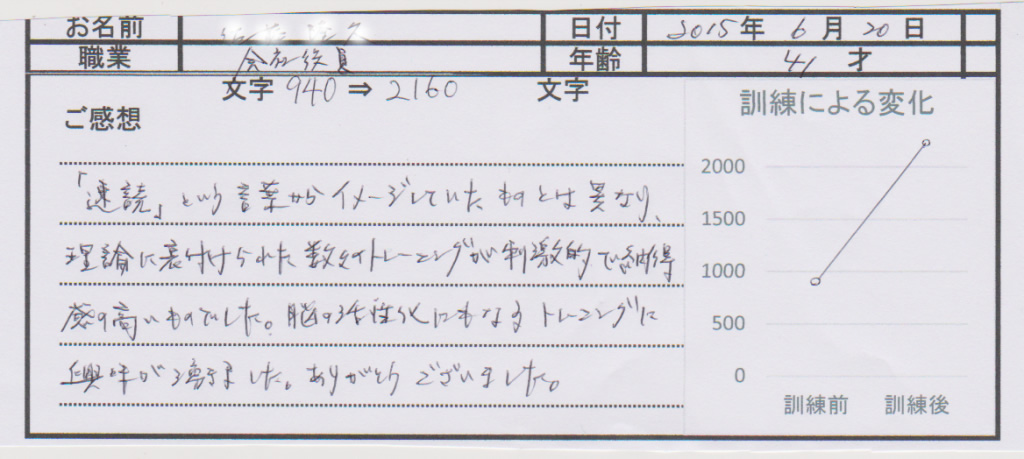 お名前 日付 2015年 6月 20日
職業 会社役員 年齢 41才
文字 940 ⇒ 2160 文字
ご感想
「速読」という言葉からイメージしていたものとは異なり、
理論に裏付けられた数々のトレーニングが刺激的で納得
感の高いものでした。脳の活性化にもなるトレーニングに
興味が増しました。ありがとうございました。
訓練による変化
2000
1500
1000
500
0
訓練前 訓練後